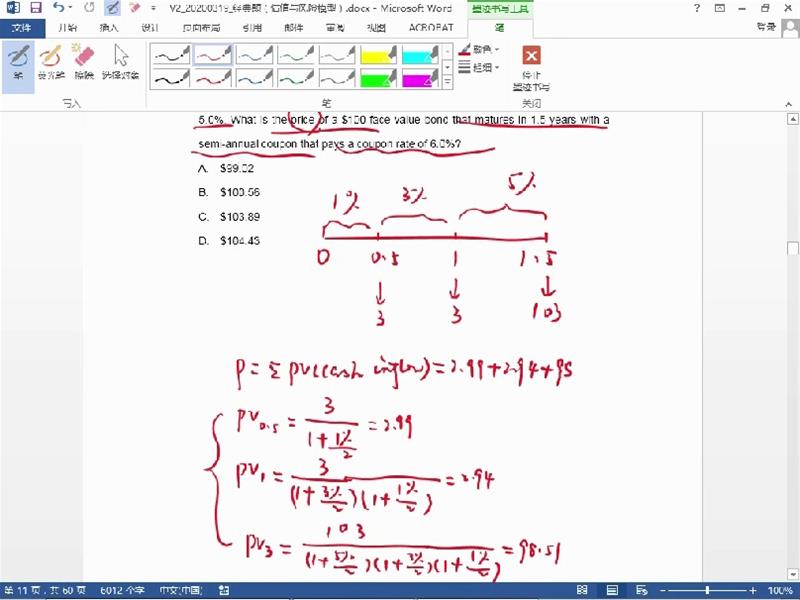 V2_20200319_经典题（估值与风险模型）.docx - Microsoft Word
墨迹书写工具
文件 开始 插入 设计 页面布局 引用 邮件 审阅 视图 ACROBAT 笔
登录
笔 荧光笔 擦除 选择对象
颜色
粗细
停止
墨迹书写
写入 笔 关闭
5.0%. What is the price of a $100 face value bond that matures in 1.5 years with a
semi-annual coupon that pays a coupon rate of 6.0%?
A. $99.02
B. $100.56
C. $103.89
D. $104.43
1% 3% 5%
0 0.5 1 1.5
3 3 103
P = Σ PV(cash inflow) = 2.99 + 2.94 + 98
PV0.5 = 3 / (1 + 1%/2) = 2.99
PV1 = 3 / (1 + 3%/2)(1 + 1%/2) = 2.94
PV3 = 103 / (1 + 5%/2)(1 + 3%/2)(1 + 1%/2) = 98.51
第 11 页，共 60 页 6012 个字 中文(中国) 100%